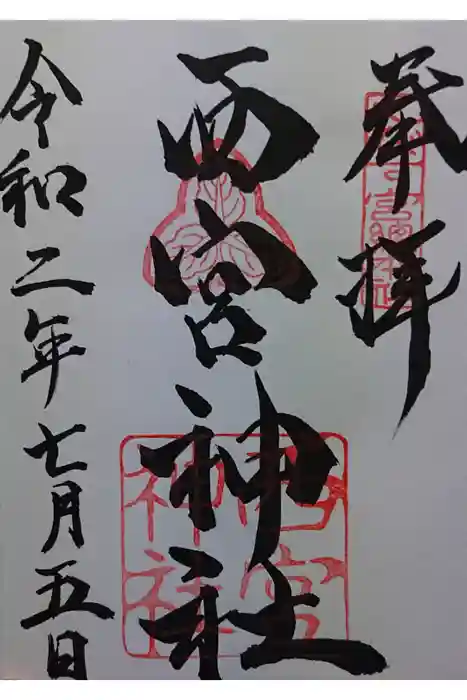 奉拝
西宮神社
令和二年七月五日
西宮神社